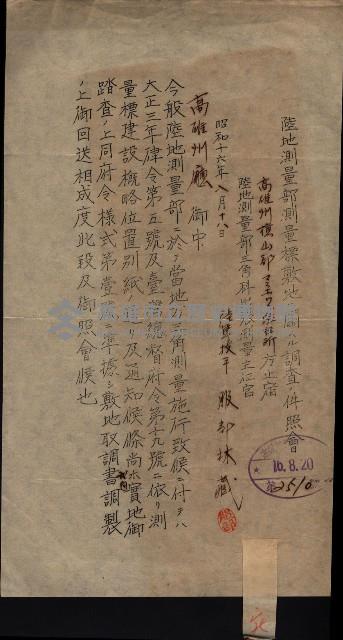 陸地測量部測量標敷地ニ関スル調査ノ件照會
高雄州旗山郡
方止宿
陸地測量部三角科
測量主任官
昭和十六年八月十八日
服部林藏
高雄州廳 御中
今般陸地測量部ニ於テ當地方三角測量施行致候ニ付テハ
大正三年律令第五號及臺灣總督府令第十九號ニ依リ測
量標建設概略位置別紙ノ通リ及通知候條尚ホ實地御
踏査ノ上同府令樣式第壹號ニ準據シ敷地取調書調製
ノ上御回送相成度此段及御照會候也
16.8.20